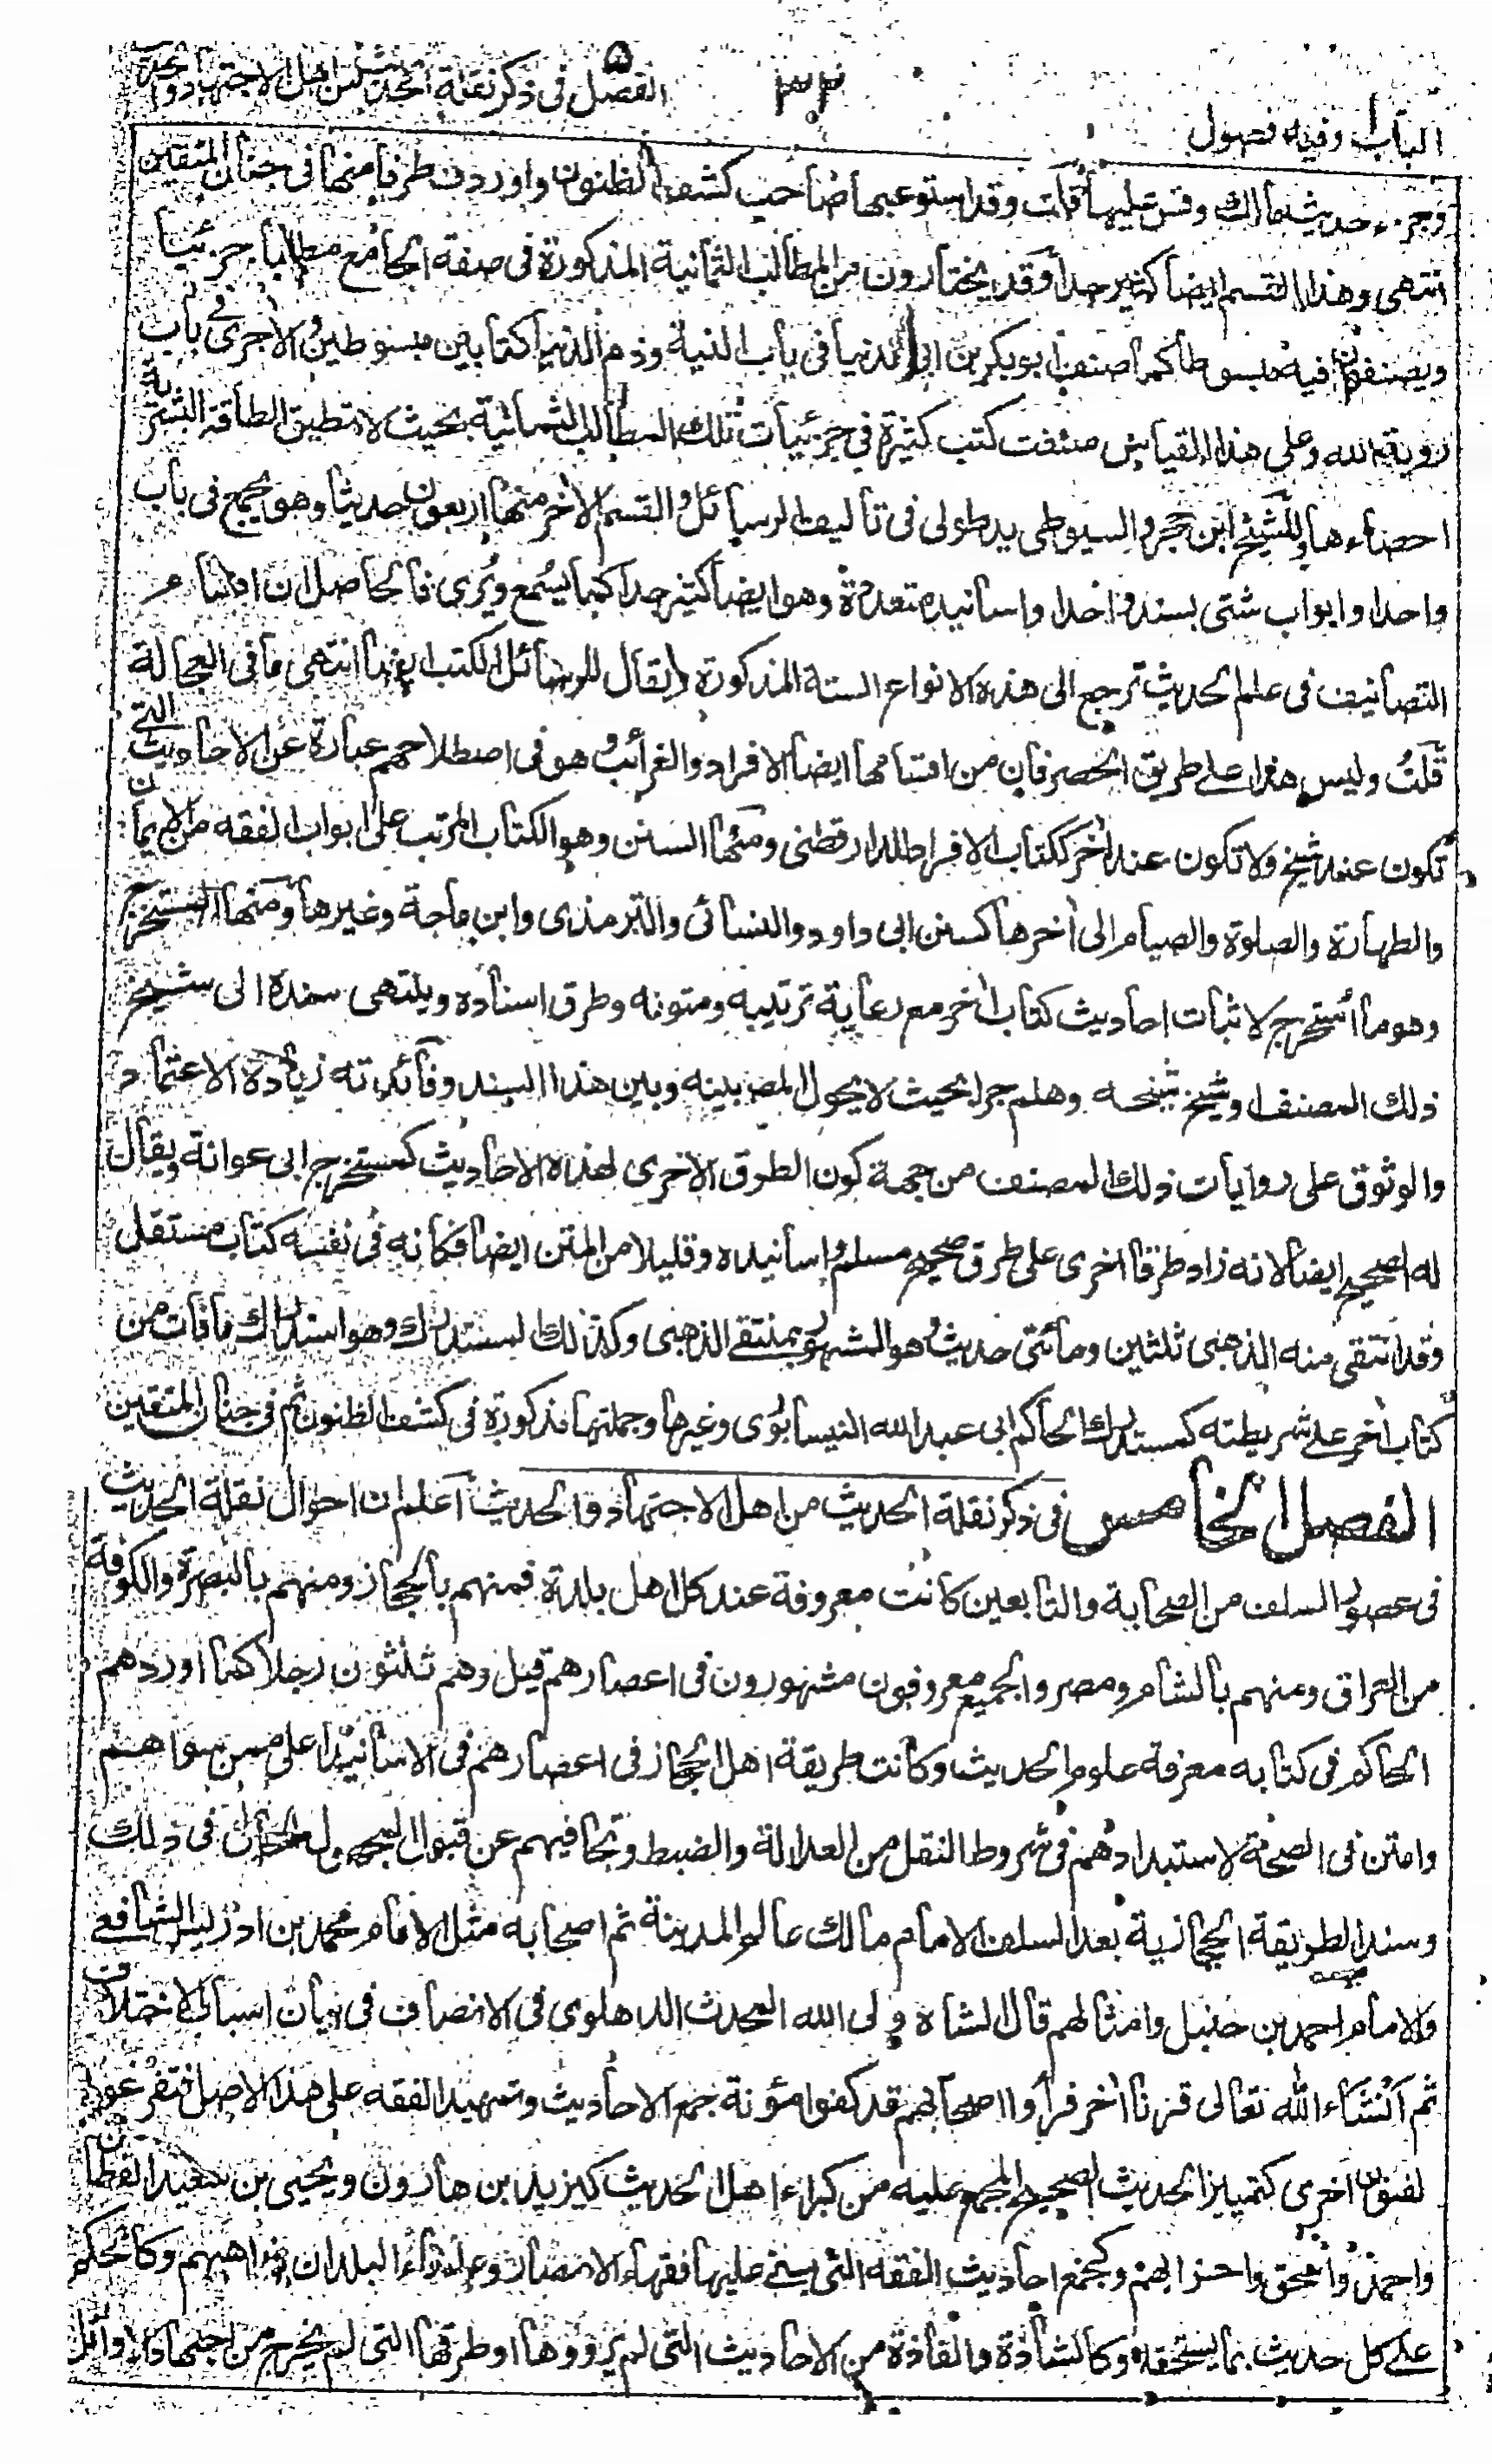 الباب وفيه فصول
٣٢
الفصل في ذكر نقلة الحديث من اهل الاجتهاد والحديث
وجزء حديث مالك وقس عليها قلت وقد استوعبها صاحب كشف الظنون واوردت طرفا منها في جنان المتقين
انتهى وهذا القسم ايضا كثير جدا وقد يختارون من المطالب الثمانية المذكورة في صفة الجامع مطلبا جزئيا
ويصنفون فيه مبسوطا كما صنف ابو بكر بن ابى الدنيا في باب النية وذم الدنيا كتابين مبسوطين والآجري في باب
روية الله وعلى هذا القياس صنفت كتب كثيرة في جزئيات تلك المطالب الثمانية بحيث لا تطيق الطاقة البشرية
احصاءها وللشيخ ابن حجر والسيوطي يد طولى في تاليف الرسائل والقسم الآخر منها اربعون حديثا وهو جمع في باب
واحد او ابواب شتى بسند واحد او اسانيد متعددة وهو ايضا كثير جدا كما يسمع ويرى فالحاصل ان اقسام
التصانيف في علم الحديث ترجع الى هذه الانواع الستة المذكورة ويقال للرسائل الكتب ايضا انتهى ما في العجالة
قلت وليس هذا على طريق الحصر فان من اقسامها ايضا الافراد والغرائب وهو في اصطلاحهم عبارة عن الاحاديث التي
تكون عند شيخ ولا تكون عند آخر ككتاب الافراد للدارقطني ومنها السنن وهو الكتاب المرتب على ابواب الفقه من الايمان
والطهارة والصلوة والصيام الى آخرها كسنن ابى داود والنسائى والترمذى وابن ماجة وغيرها ومنها المستخرج
وهو ما استخرج لاثبات احاديث كتاب آخر مع رعاية ترتيبه ومتونه وطرق اسناده وينتهى سنده الى شيخ
ذلك المصنف او شيخ شيخه وهلم جرا بحيث لا يحول المصنف بينه وبين هذا السند وفائدته زيادة الاعتماد
والوثوق على روايات ذلك المصنف من جهة كون الطرق الاخرى لهذه الاحاديث كمستخرج ابى عوانة ويقال
له الصحيح ايضا لانه زاد طرقا اخرى على طرق صحيح مسلم واسانيده وقليلا من المتن ايضا فكانه في نفسه كتاب مستقل
وقد انتقى منه الذهبى ثلثين ومائتى حديث وهو المشهور بمنتقى الذهبى وكذلك المستدرك وهو استدراك ما فات من
كتاب آخر على شريطته كمستدرك الحاكم ابى عبد الله النيسابوى وغيرها وجملتها مذكورة في كشف الظنون ثم في جنان المتقين
الفصل الخامس في ذكر نقلة الحديث من اهل الاجتهاد والحديث اعلم ان احوال نقلة الحديث
في عصور السلف من الصحابة والتابعين كانت معروفة عند كل اهل بلدة فمنهم بالحجاز ومنهم بالبصرة والكوفة
من العراق ومنهم بالشام ومصر والجميع معروفون مشهورون في اعصارهم قيل وهم ثلثون رجلا كما اوردهم
الحاكم في كتابه معرفة علوم الحديث وكانت طريقة اهل الحجاز في اعصارهم في الاسانيد اعلى ممن سواهم
وامتن في الصحة لاستبدادهم في شروط النقل من العدالة والضبط وتجافيهم عن قبول المجهول الحال في ذلك
وسند الطريقة الحجازية بعد السلف الامام مالك عالم المدينة ثم اصحابه مثل الامام محمد بن ادريس الشافعى
والامام احمد بن حنبل وامثالهم قال الشاه ولى الله المحدث الدهلوى في الانصاف في بيان اسباب الاختلاف
ثم انشاء الله تعالى قرنا آخر فرأوا اصحابهم قد كفوا مؤنة جمع الاحاديث وتمهيد الفقه على هذا الاصل فتفرغوا
لفنون اخرى كتمييز الحديث الصحيح المجمع عليه من كبراء اهل الحديث كيزيد بن هارون ويحيى بن سعيد القطان
واحمد واسحق واضرابهم وكجمع احاديث الفقه التى بنى عليها فقهاء الامصار وعلماء البلدان مذاهبهم وكالحكم
على كل حديث بما يستحقه وكالشاذة والفاذة من الاحاديث التى لم يرووها او طرقها التى لم يخرج من جهتها الاوائل